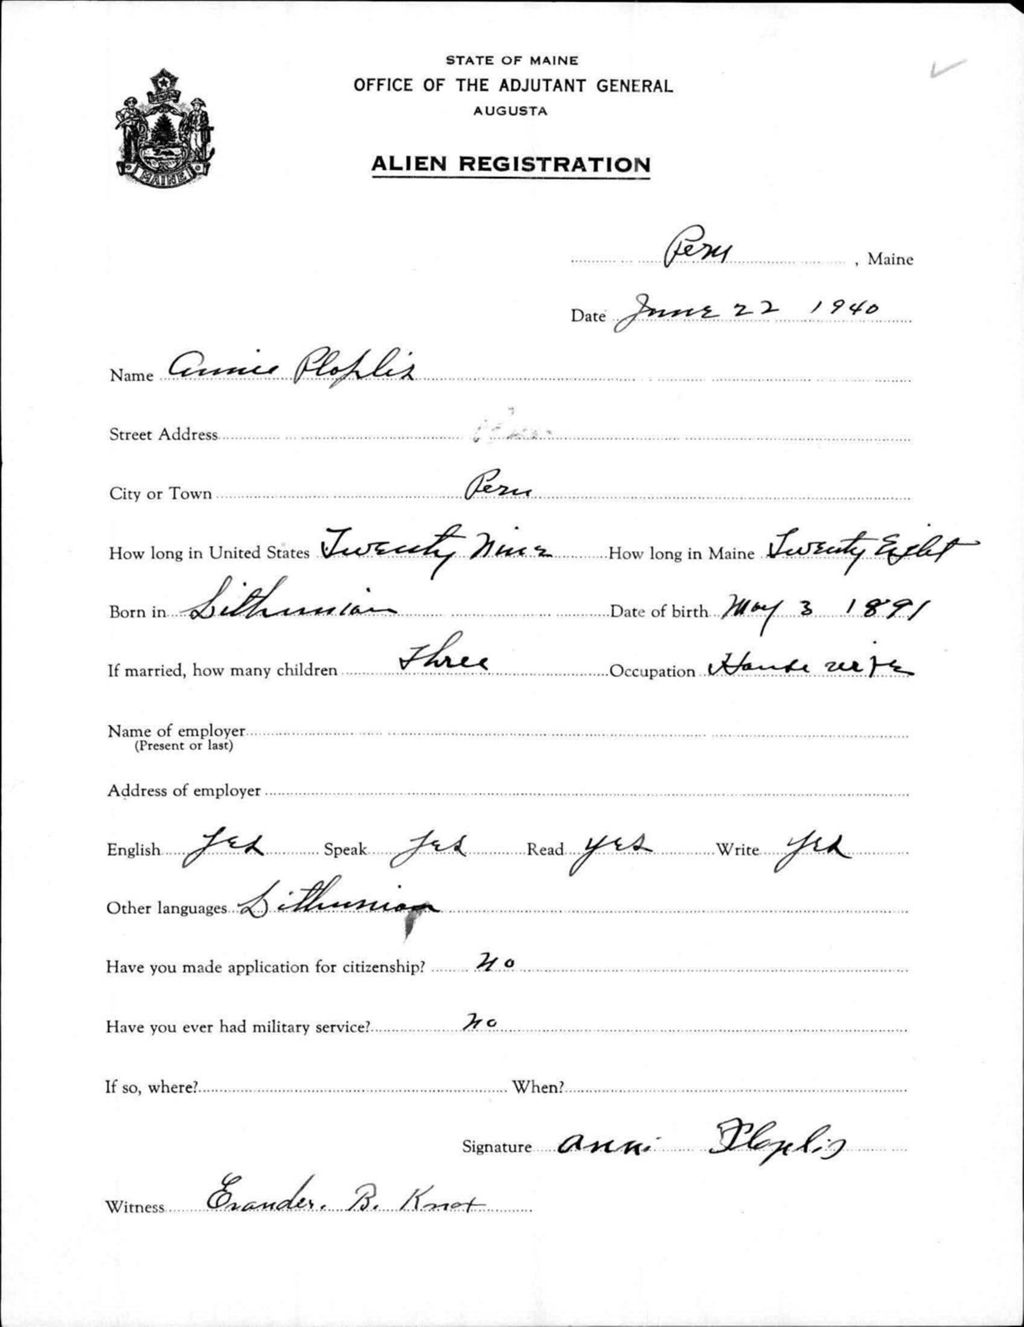 STATE OF MAINE
OFFICE OF THE ADJUTANT GENERAL
AUGUSTA
MAINE
ALIEN REGISTRATION
Peru, Maine
Date June 22 1940
Name Annie Ploplis
Street Address
City or Town Peru
How long in United States Twenty Nine How long in Maine Twenty Eight
Born in Lithunian Date of birth May 3 1891
If married, how many children Three Occupation House wife
Name of employer
(Present or last)
Address of employer
English Yes Speak Yes Read Yes Write Yes
Other languages Lithunian
Have you made application for citizenship? No
Have you ever had military service? No
If so, where? When?
Signature Anni Ploplis
Witness Evander. B. Knox